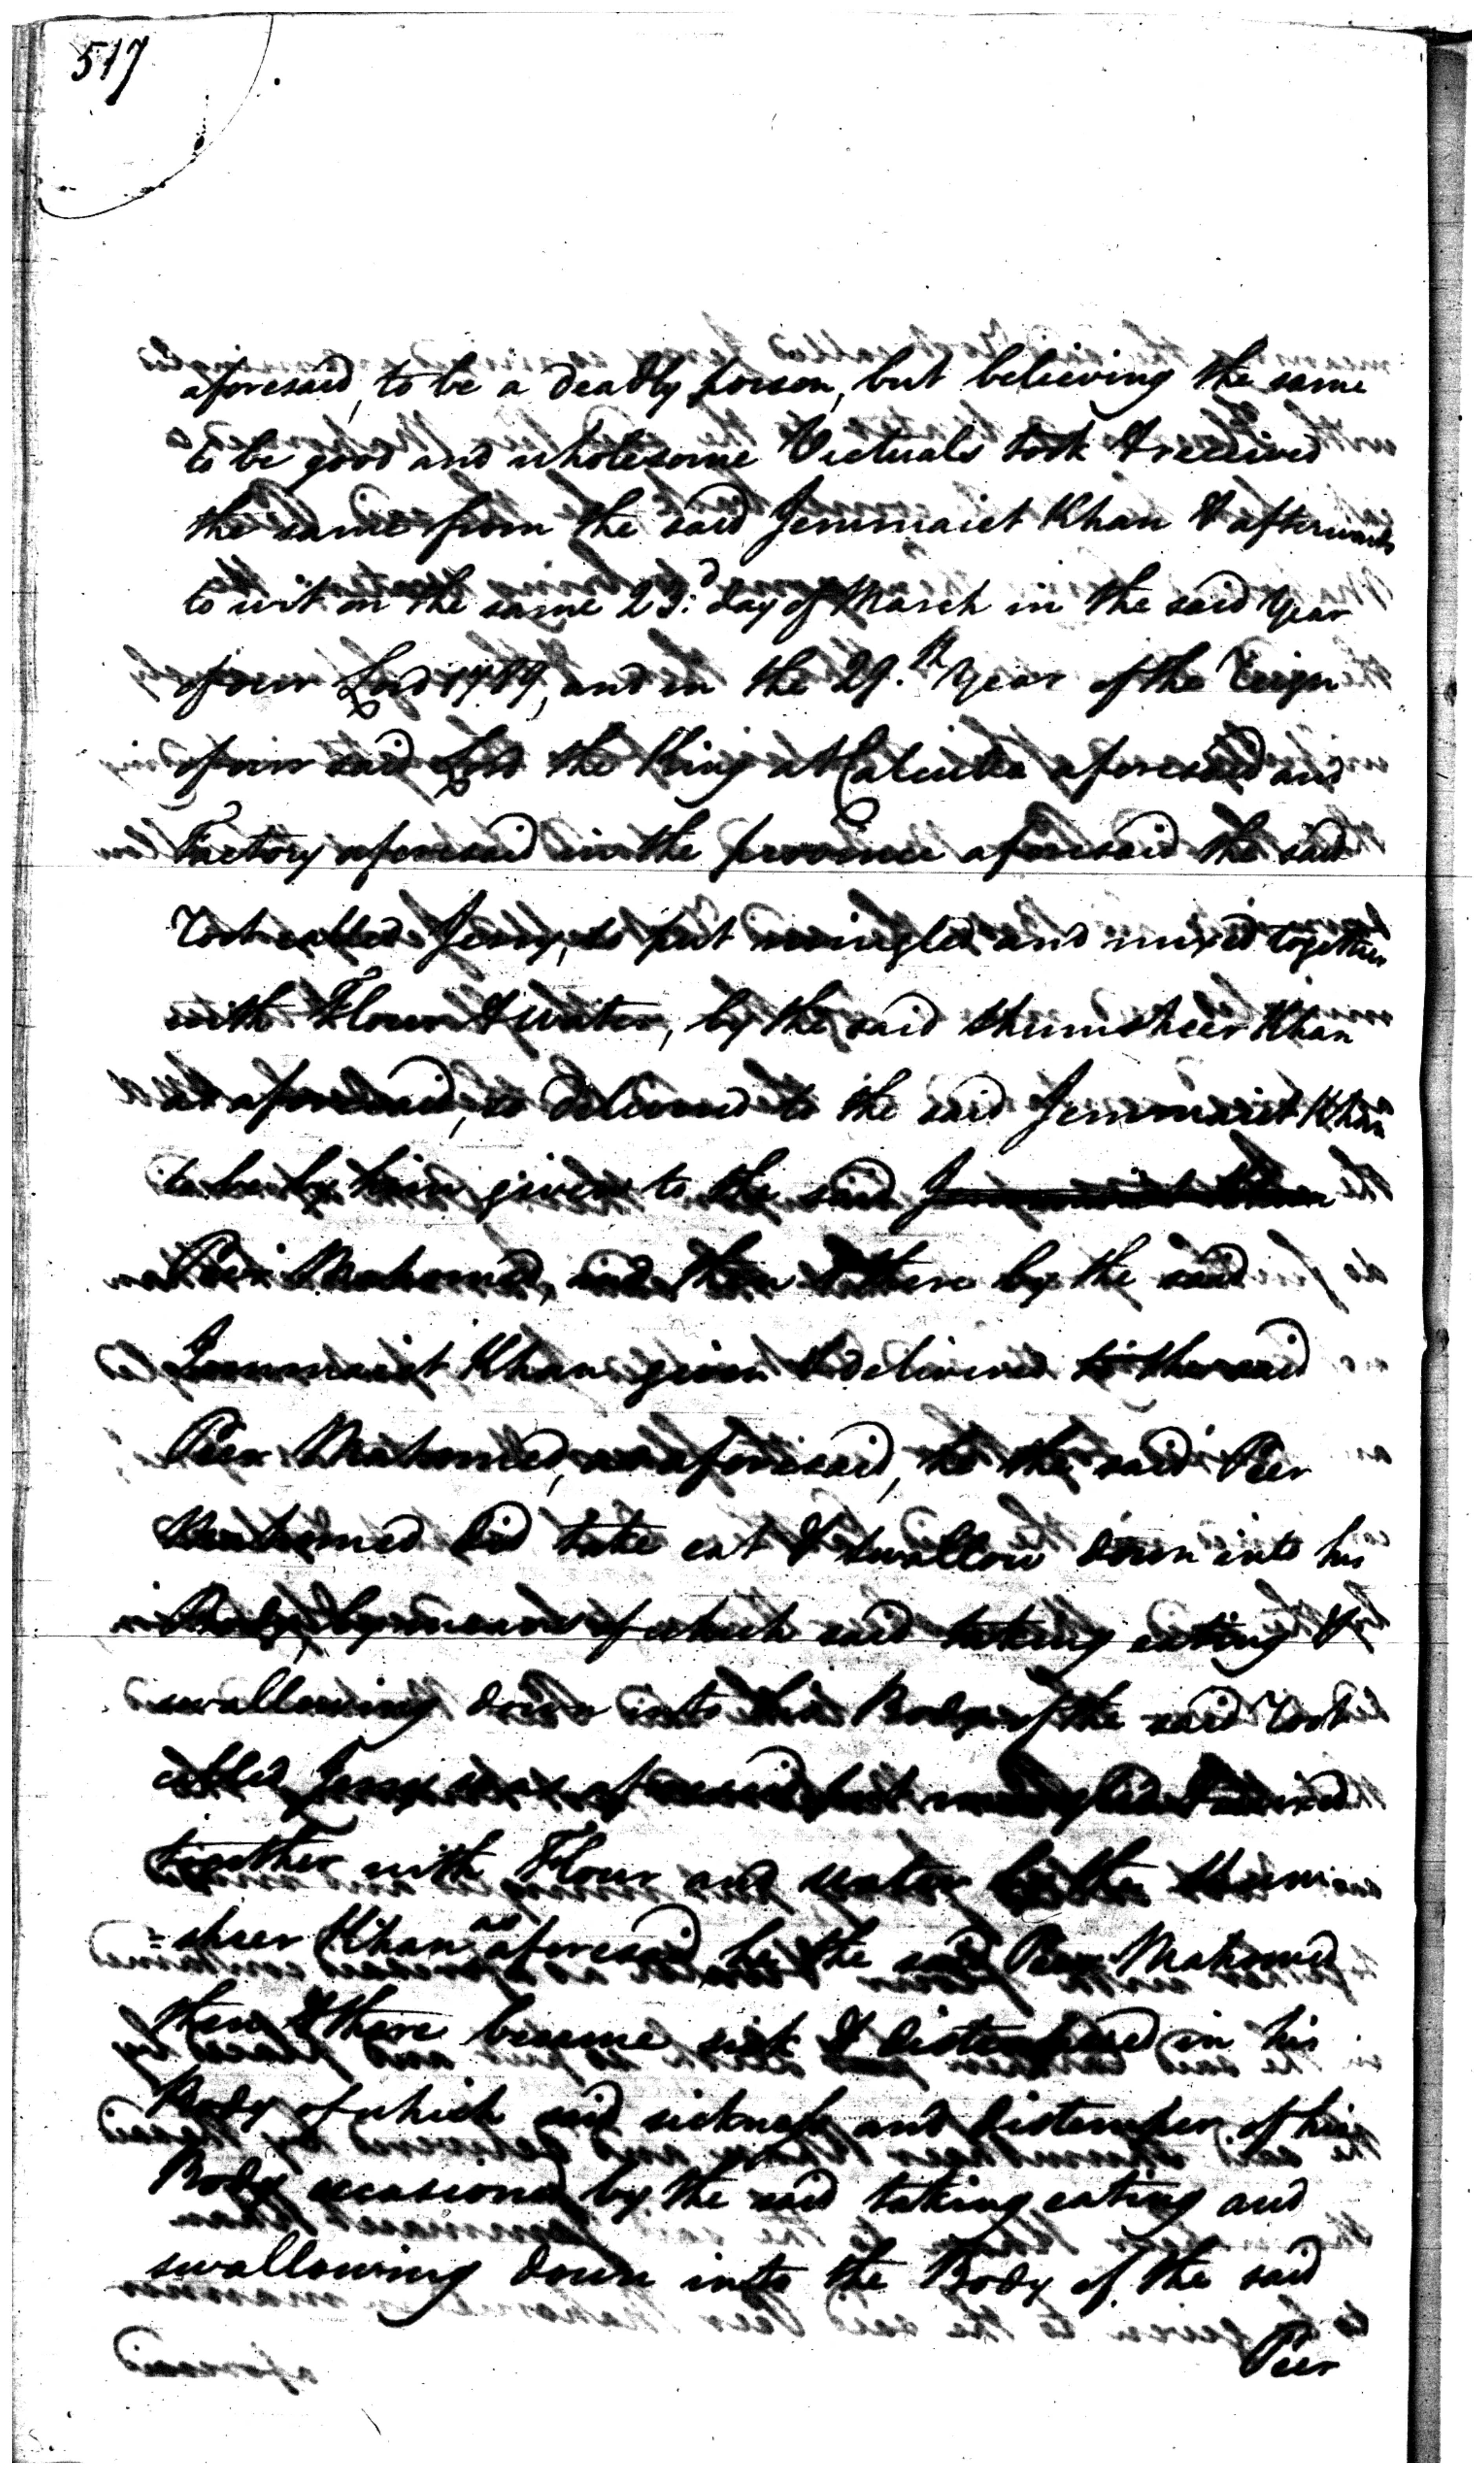 517
aforesaid, to be a deadly poison, but believing the same
to be good and wholesome Victuals took & received
the same from the said Jemmaiet Khan & afterwards
to wit on the same 23.d day of March in the said Year
of our Lord 1789, and in the 29.th Year of the Reign
of our said Lord the King at Calcutta aforesaid and
Factory aforesaid in the province aforesaid the said
Root called Jerry, so put mingled and mixed together
with Flour & water, by the said Shumsheer Khan
as aforesaid, so delivered to the said Jemmaiet Khan
to be by him given to the said Jemmaiet Khan
Peer Mahomed, and then & there by the said
Jemmaiet Khan given & delivered to the said
Peer Mahomed, as aforesaid, he the said Peer
Mahomed did take eat & swallow down into his
Body, by means of which said taking eating &
swallowing down into his Body of the said Root
called Jerry so as aforesaid put mingled & mixed
together with Flour and water by the Shum
=sheer Khan as aforesaid, he the said Peer Mahomed
then & there became sick & distempered in his
Body of which said sickness and distemper of his
Body occasioned by the said taking eating and
swallowing down into the Body of the said
Peer